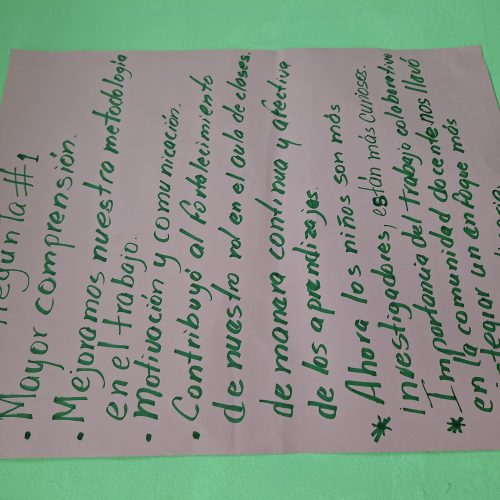 Pregunta #1
• Mayor comprensión.
• Mejoramos nuestra metodología
en el trabajo.
• Motivación y comunicación.
• Contribuyó al fortalecimiento
de nuestro rol en el aula de clases,
de manera continua y afectiva
de los aprendizajes.
* Ahora los niños son más
investigadores, están más curiosos.
* Importancia del trabajo colaborativo
en la comunidad docente nos llevó
un enfoque más